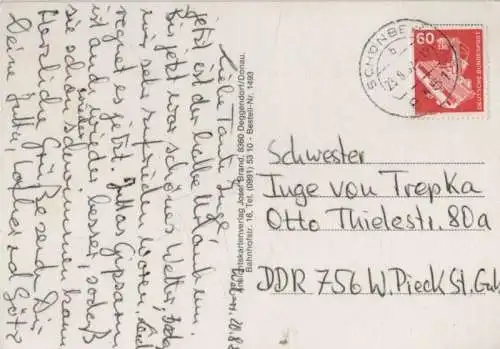 Liebe Tante Inge!
jetzt ist der halbe Urlaub um.
Bis jetzt war schönes Wetter, so daß
wir sehr zufrieden waren. Leider
regnet es jetzt. Juttas Gipsarm
ist auch wieder besser, sodaß
sie schon wieder schwimmen kann
Herzliche Grüße senden Dir
Deine Jutta, Lothar und Götz
Ansichtskartenverlag Josef Brand, 8360 Deggendorf/Donau,
Bahnhofstr. 16, Tel. (0991) 53 10 - Bestell-Nr. 1493
SCHÖNBE
60
DEUTSCHE BUNDESPOST
Schwester
Inge von Trepka
Otto Thielestr. 80a
DDR 756 W. Pieck St. Gub